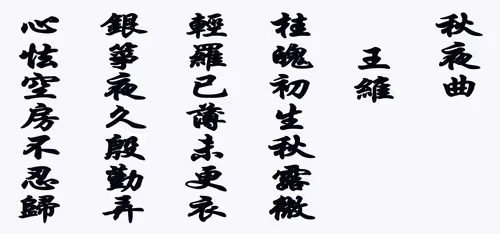 秋夜曲
王維
桂魄初生秋露微
輕羅已薄未更衣
銀箏夜久殷勤弄
心怯空房不忍歸